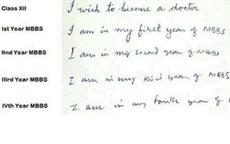 Class XII I wish to become a doctor
Ist Year MBBS I am in my first year of MBBS
IInd Year MBBS I am in my second year of MBBS
IIIrd Year MBBS I am in my third year of MBBS
IVth Year MBBS I am in my fourth year of